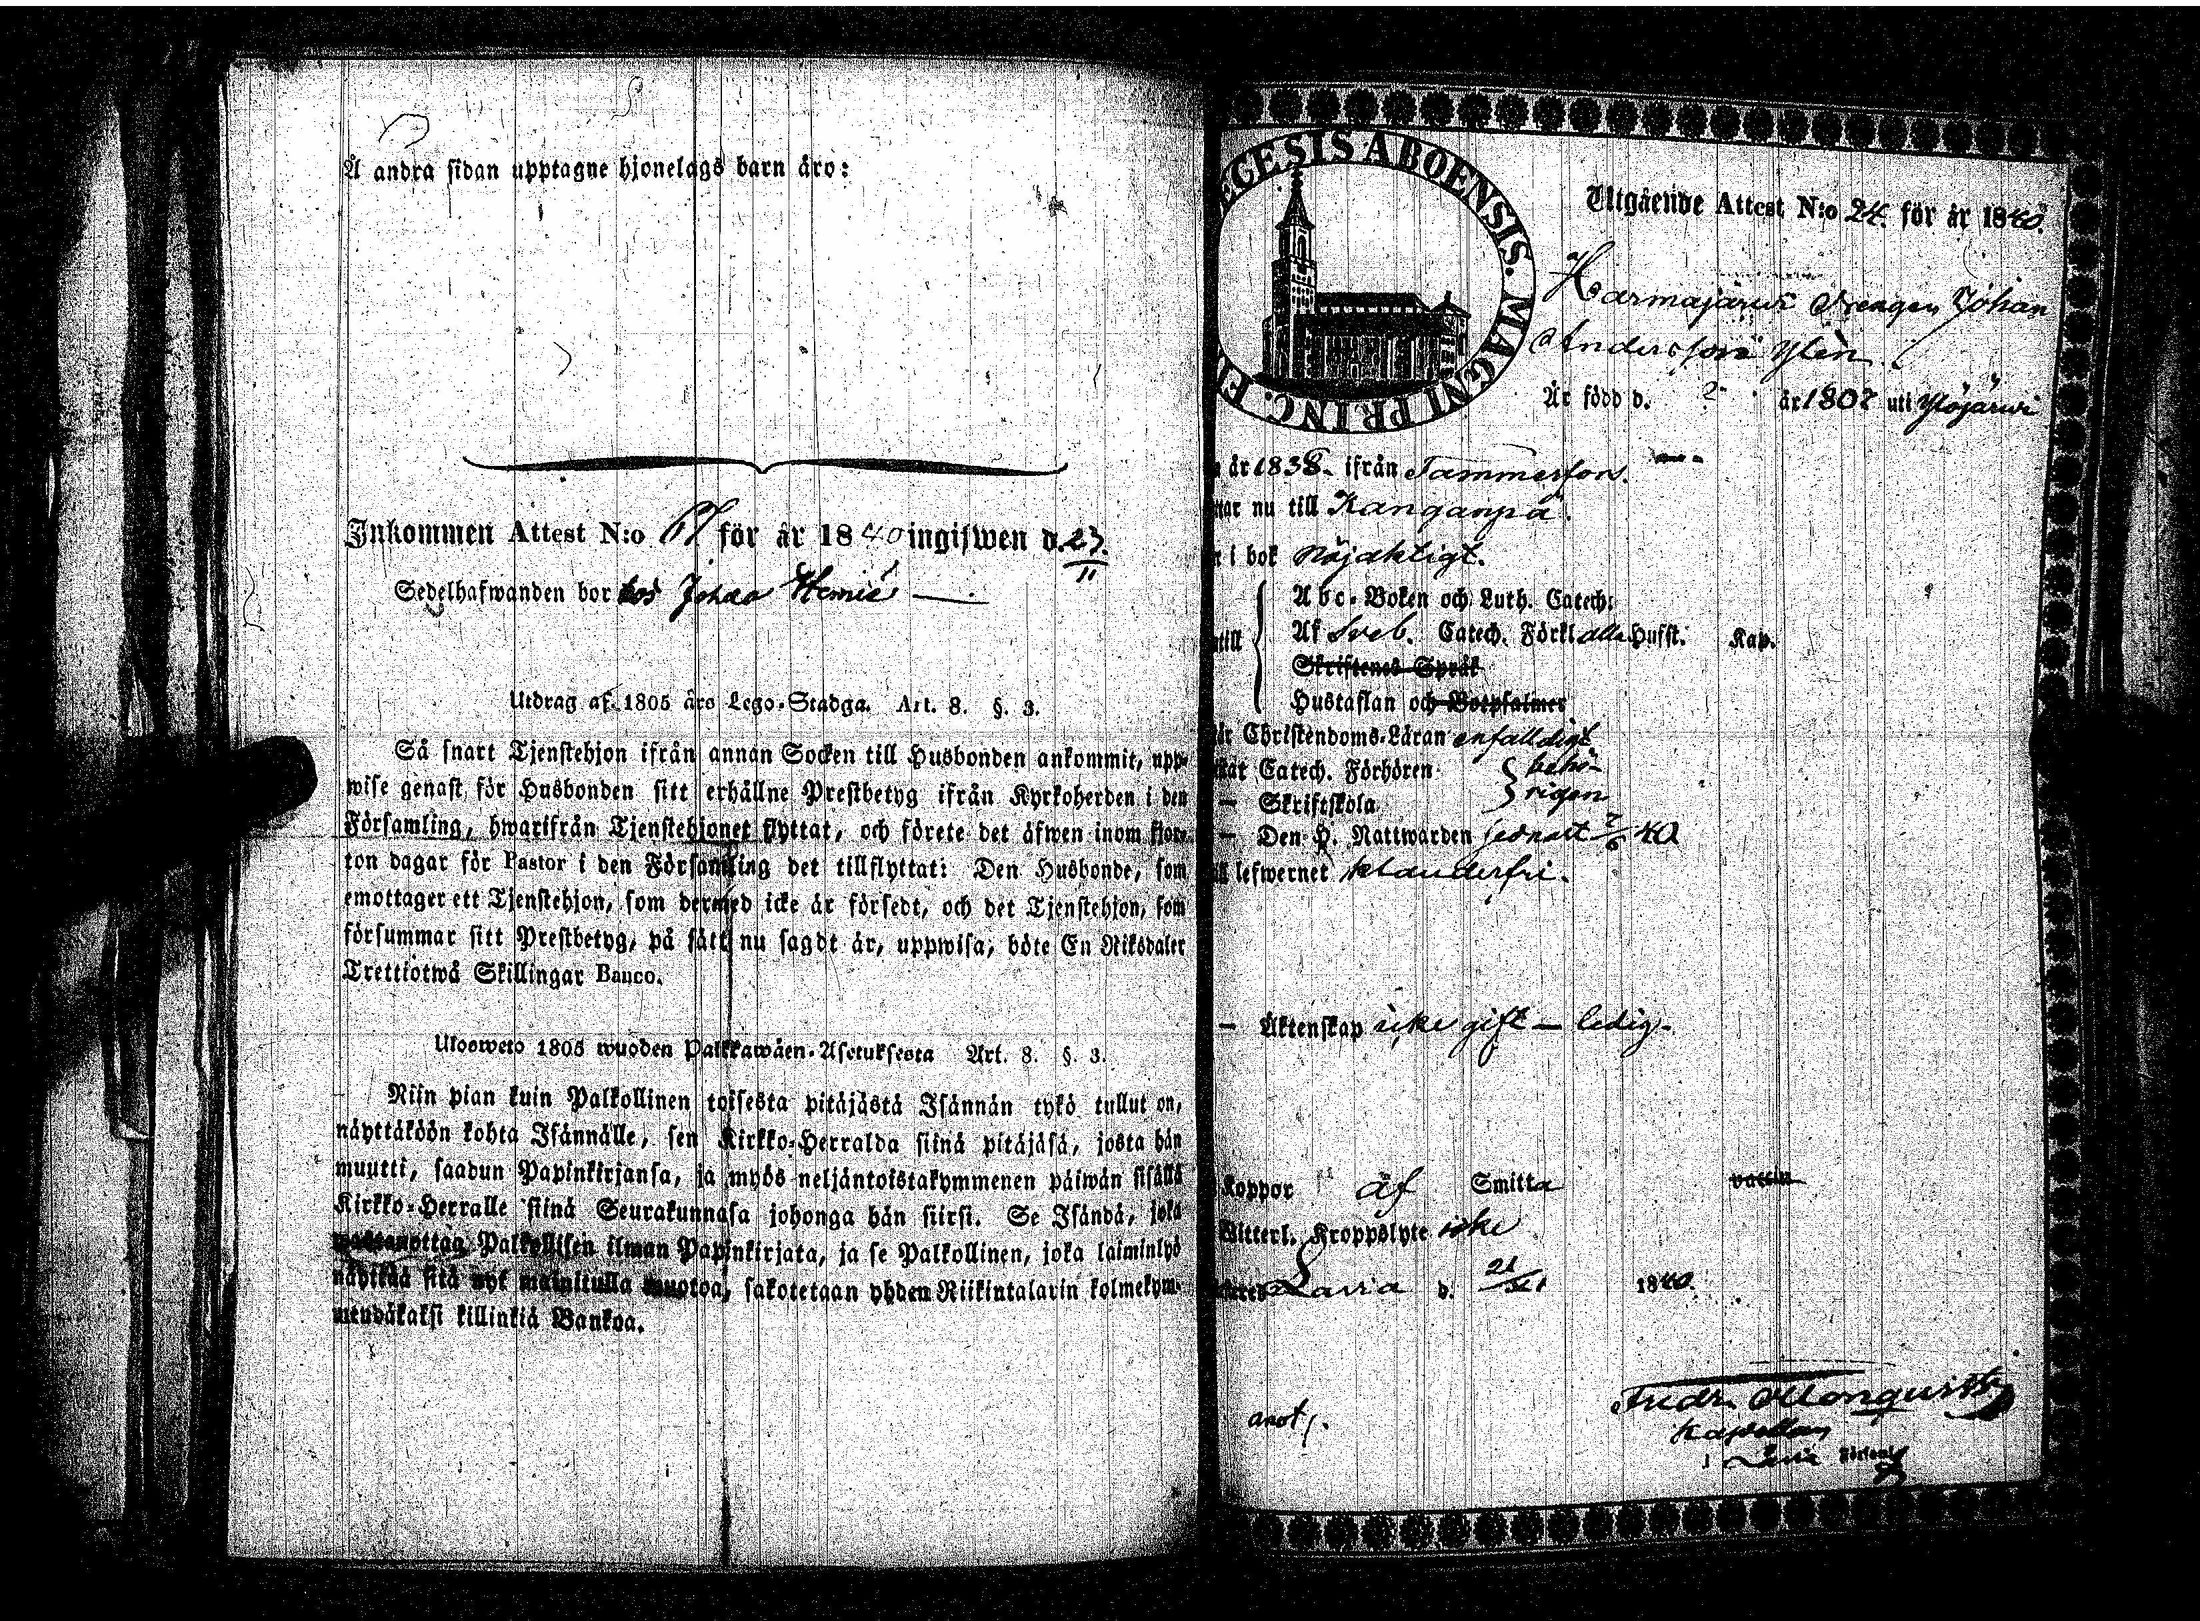 Å andra sidan upptagne hjonelags barn äro:
Inkommen Attest N:o 67 för år 1840 ingifwen d. 23.
11
Sedelhafwanden bor hos Johan
Utdrag af 1805 års Lego-Stadga. Art. 8. §. 3.
Så snart Tjenstehjon ifrån annan Socken till Husbonden ankommit, upp-
wise genast för Husbonden sitt erhållne Prestbetyg ifrån Kyrkoherden i den
Församling, hwarifrån Tjenstehjonet flyttat, och förete det äfwen inom fjor-
ton dagar för Pastor i den Församling det tillflyttat: Den Husbonde, som
emottager ett Tjenstehjon, som dermed icke är försedt, och det Tjenstehjon, som
försummar sitt Prestbetyg, på sätt nu sagdt är, uppwisa, böte En Riksdaler
Trettiotwå Skillingar Banco.
Ulosweto 1805 wuoden Palkkawäen-Asetuksesta Art. 8. §. 3.
Niin pian kuin Palkollinen toisesta pitäjästä Isännän tykö tullut on,
näyttäköön kohta Isännälle, sen Kirkko-Herralda siinä pitäjäsä, josta hän
muutti, saadun Papinkirjansa, ja myös neljäntoistakymmenen päiwän sisällä
Kirkko-Herralle siinä Seurakunnasa johonga hän siirsi. Se Isändä, joka
wastanottaa Palkollisen ilman Papinkirjata, ja se Palkollinen, joka laiminlyö
näyttää sitä nyt mainitulla muotoa, sakotetaan yhden Riikintalarin kolmekym-
mendäkaksi killinkiä Bankoa.
EGESIS ABOENSIS. MAGNI PRINC. FI
Utgående Attest N:o 24. för år 1840.
Harmajärwi Drengen Johan
Andersson Ylén
Är född d. ? år 1807 uti Ylöjärwi
år 1838 ifrån Tammerfors.
nu till Kanganpä.
i bok nöjaktigt.
Abc-Boken och Luth. Catech:
till Af Sveb. Catech. Förkl alla Hufst. Kap.
Skriftenes Språk
Hustaflan och Botpsalmer
Christendoms-Läran enfalldigt
Catech. Förhören behö-
— Skriftskola rigen
— Den H. Nattwarden sednast 7/6 40
lefwernet klanderfri.
— Äktenskap icke gift — ledig-
koppor af Smitta vaccin
Witterl. Kroppslyte icke
Lavia d. 21/11 1840.
Fredr.
Kapellan
i Lavia
anot.